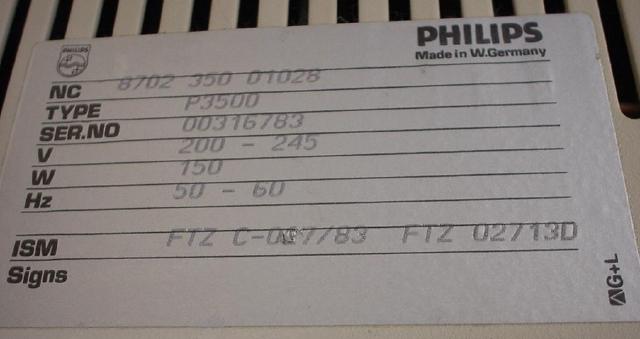 PHILIPS
PHILIPS
Made in W.Germany
NC 8702 350 01028
TYPE P3500
SER.NO 00316/83
V 200 - 245
W 150
Hz 50 - 60
ISM FTZ C-087/83 FTZ 02713D
Signs
G+L